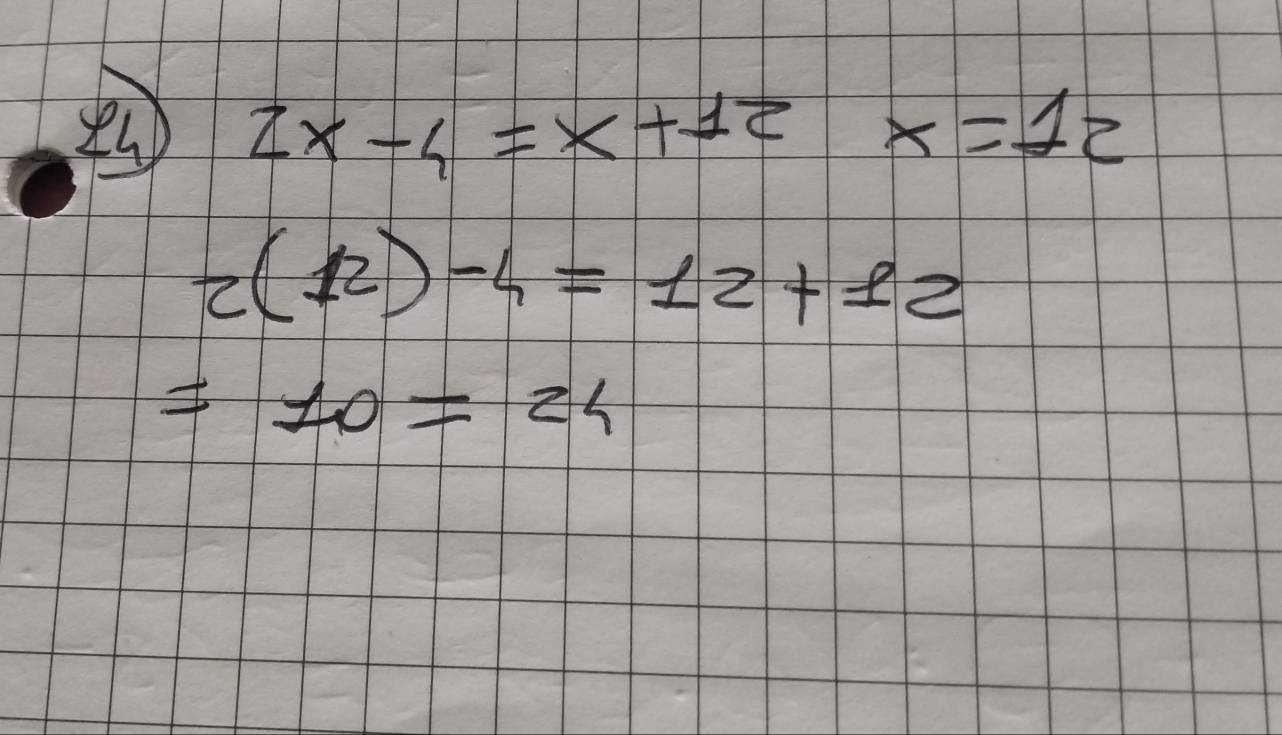 24) 2x - 4 = x + 12 x = 12
2(12) - 4 = 12 + 12
= 10 = 24